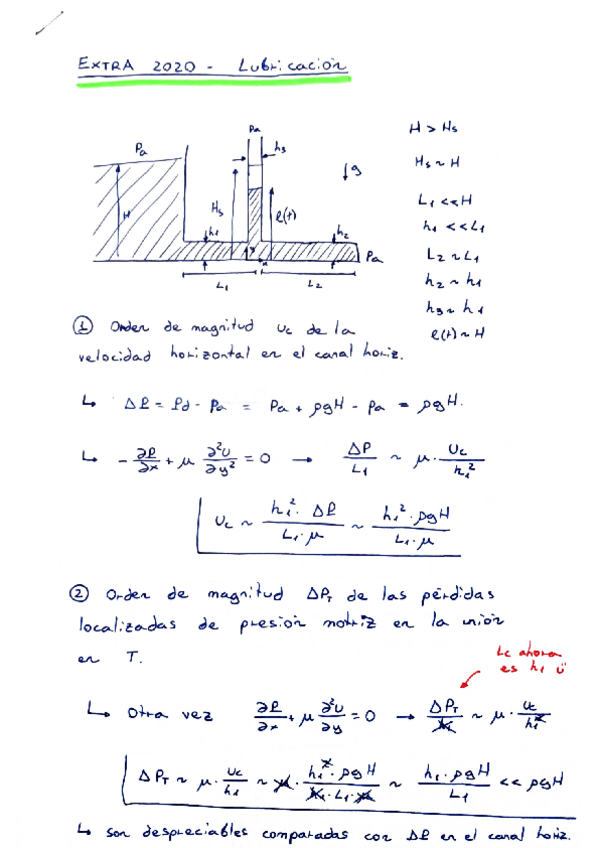 EXTRA 2020 - Lubricación
Pa
Pa
h3
↓g
H
Hs
l(t)
h1
h2
y
x
Pa
L1
L2
H > Hs
Hs ~ H
L1 << H
h1 << L1
L2 ~ L1
h2 ~ h1
h3 ~ h1
l(t) ~ H
① Orden de magnitud uc de la
velocidad horizontal en el canal horiz.
↳ ΔP = Pd - Pa = Pa + ρgH - Pa = ρgH.
↳ - ∂P/∂x + μ ∂²U/∂y² = 0 → ΔP/L1 ~ μ · Uc/h1²
Uc ~ h1² · ΔP / L1 · μ ~ h1² · ρgH / L1 · μ
② Orden de magnitud ΔPT de las pérdidas
localizadas de presión motriz en la unión
en T.
Lc ahora
es h1 ü
↳ Otra vez ∂P/∂x + μ ∂²U/∂y = 0 → ΔPT/h1 ~ μ · Uc/h1²
ΔPT ~ μ · Uc/h1 ~ μ · h1² · ρgH / h1 · L1 · μ ~ h1 · ρgH / L1 << ρgH
↳ son despreciables comparadas con ΔP en el canal horiz.